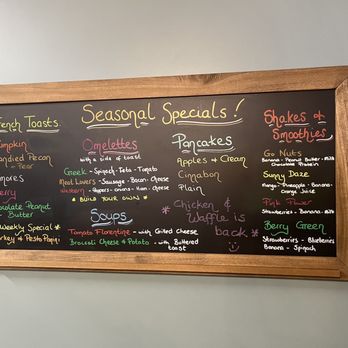 Seasonal Specials!
French Toasts
Pumpkin
Candied Pecan
Pear
S'mores
Berry
Chocolate Peanut
Butter
Weekly Special
Turkey & Pesto Panini
Omelettes
with a side of toast
Greek - Spinach - Feta - Tomato
Meat Lovers - Sausage - Bacon - Cheese
Western - Peppers - onions - Ham - Cheese
* BUILD YOUR OWN *
Soups
Tomato Florentine - with Grilled Cheese
Broccoli Cheese & Potato - with Buttered
toast
Pancakes
Apples & Cream
Cinnabon
Plain
* Chicken &
Waffle is
back *
Shakes or
Smoothies
Go Nuts
Banana - Peanut Butter - Milk
Chocolate Protein
Sunny Daze
Mango - Pineapple - Banana -
Orange Juice
Pink Power
Strawberries - Banana - Milk
Berry Green
Strawberries - Blueberries
Banana - Spinach